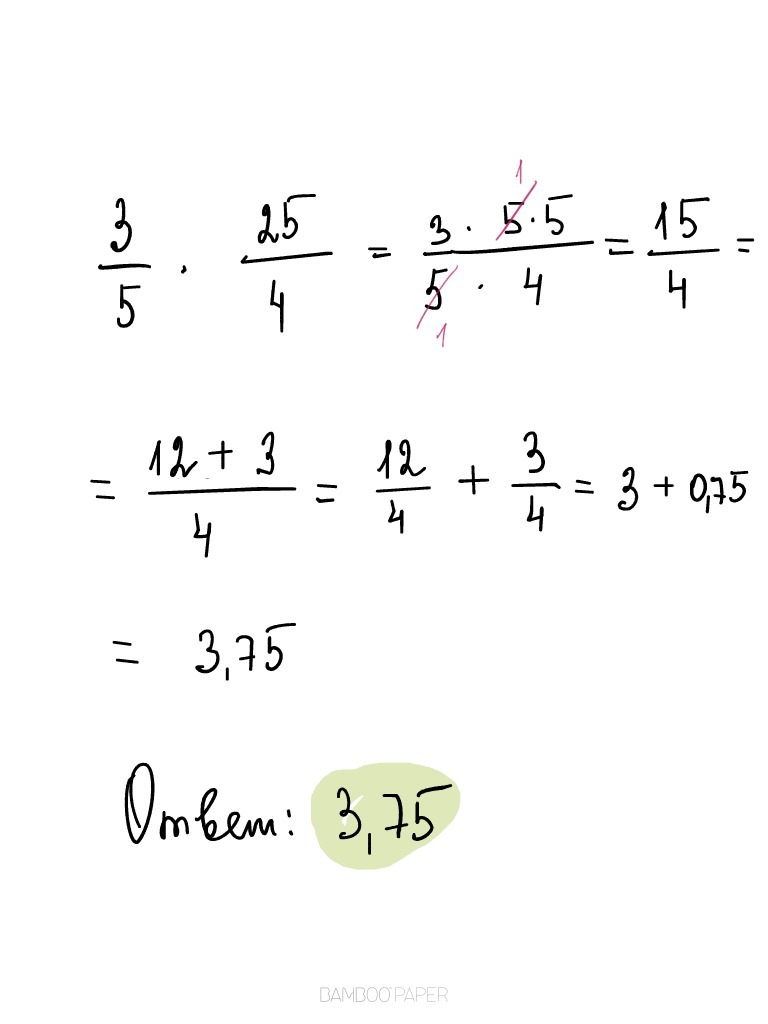 3/5 · 25/4 = 3 · 5 · 5 / 5 · 4 = 15/4 =
1
1
= 12 + 3 / 4 = 12/4 + 3/4 = 3 + 0,75
= 3,75
Ответ: 3,75
BAMBOO PAPER